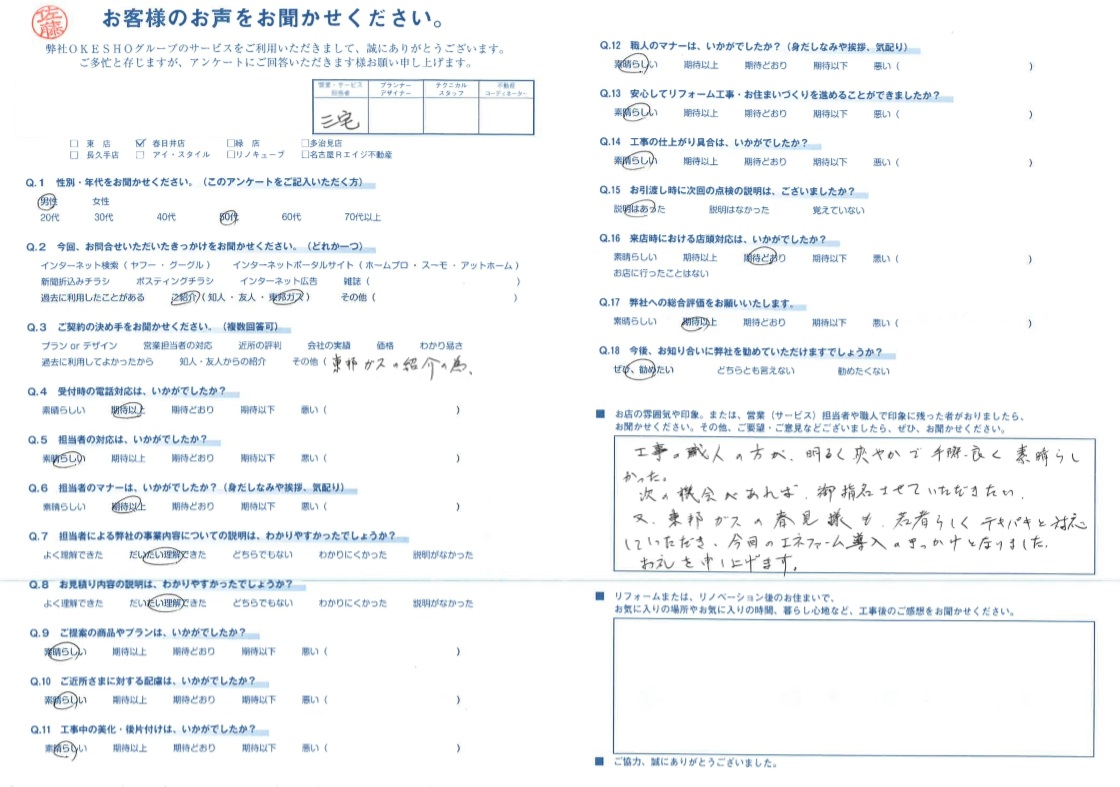 佐藤
お客様のお声をお聞かせください。
弊社OKESHOグループのサービスをご利用いただきまして、誠にありがとうございます。
ご多忙と存じますが、アンケートにご回答いただきます様お願い申し上げます。
営業・サービス担当者 プランナーデザイナー テクニカルスタッフ 不動産コーディネーター
三宅
□ 東 店 ☑ 春日井店 □緑 店 □多治見店
□ 長久手店 □ アイ・スタイル □リノキューブ □名古屋Rエイジ不動産
Q.1 性別・年代をお聞かせください。（このアンケートをご記入いただく方）
男性 女性
20代 30代 40代 50代 60代 70代以上
Q.2 今回、お問合せいただいたきっかけをお聞かせください。（どれか一つ）
インターネット検索（ ヤフー ・ グーグル ） インターネットポータルサイト（ ホームプロ ・ スーモ ・ アットホーム ）
新聞折込みチラシ ポスティングチラシ インターネット広告 雑誌（ ）
過去に利用したことがある ご紹介（ 知人 ・ 友人 ・ 東邦ガス ） その他（ ）
Q.3 ご契約の決め手をお聞かせください。（複数回答可）
プラン or デザイン 営業担当者の対応 近所の評判 会社の実績 価格 わかり易さ
過去に利用してよかったから 知人・友人からの紹介 その他（ 東邦ガスの紹介の為、
Q.4 受付時の電話対応は、いかがでしたか？
素晴らしい 期待以上 期待どおり 期待以下 悪い（ ）
Q.5 担当者の対応は、いかがでしたか？
素晴らしい 期待以上 期待どおり 期待以下 悪い（ ）
Q.6 担当者のマナーは、いかがでしたか？（身だしなみや挨拶、気配り）
素晴らしい 期待以上 期待どおり 期待以下 悪い（ ）
Q.7 担当者による弊社の事業内容についての説明は、わかりやすかったでしょうか？
よく理解できた だいたい理解できた どちらでもない わかりにくかった 説明がなかった
Q.8 お見積り内容の説明は、わかりやすかったでしょうか？
よく理解できた だいたい理解できた どちらでもない わかりにくかった 説明がなかった
Q.9 ご提案の商品やプランは、いかがでしたか？
素晴らしい 期待以上 期待どおり 期待以下 悪い（ ）
Q.10 ご近所さまに対する配慮は、いかがでしたか？
素晴らしい 期待以上 期待どおり 期待以下 悪い（ ）
Q.11 工事中の美化・後片付けは、いかがでしたか？
素晴らしい 期待以上 期待どおり 期待以下 悪い（ ）
Q.12 職人のマナーは、いかがでしたか？（身だしなみや挨拶、気配り）
素晴らしい 期待以上 期待どおり 期待以下 悪い（ ）
Q.13 安心してリフォーム工事・お住まいづくりを進めることができましたか？
素晴らしい 期待以上 期待どおり 期待以下 悪い（ ）
Q.14 工事の仕上がり具合は、いかがでしたか？
素晴らしい 期待以上 期待どおり 期待以下 悪い（ ）
Q.15 お引渡し時に次回の点検の説明は、ございましたか？
説明はあった 説明はなかった 覚えていない
Q.16 来店時における店頭対応は、いかがでしたか？
素晴らしい 期待以上 期待どおり 期待以下 悪い（ ）
お店に行ったことはない
Q.17 弊社への総合評価をお願いいたします。
素晴らしい 期待以上 期待どおり 期待以下 悪い（ ）
Q.18 今後、お知り合いに弊社を勧めていただけますでしょうか？
ぜひ、勧めたい どちらとも言えない 勧めたくない
■ お店の雰囲気や印象。または、営業（サービス）担当者や職人で印象に残った者がおりましたら、
お聞かせください。その他、ご要望・ご意見などございましたら、ぜひ、お聞かせください。
工事の職人の方が、明るく爽やかで手際良く素晴らし
かった。
次の機会があれば、御指名させていただきたい。
又、東邦ガスの春見様も、若者らしくテキパキと対応
していただき、今回のエネファーム導入のきっかけとなりました。
お礼を申し上げます。
■ リフォームまたは、リノベーション後のお住まいで、
お気に入りの場所やお気に入りの時間、暮らし心地など、工事後のご感想をお聞かせください。
■ ご協力、誠にありがとうございました。